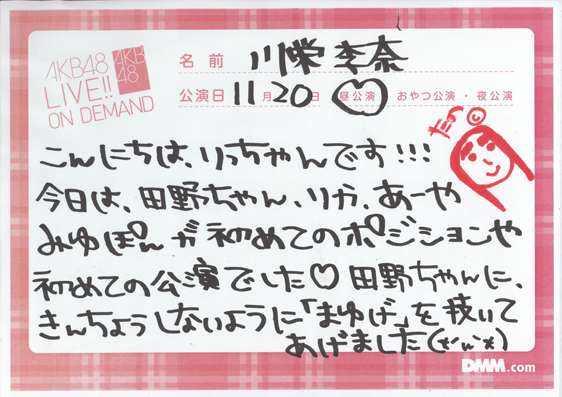 AKB48
LIVE!!
ON DEMAND
AKB
48
名前 川栄李奈
公演日 11月20日 昼公演 おやつ公演・夜公演
こんにちは、りっちゃんです!!!
今日は、田野ちゃん、りか、あーや
みゆぽんが初めてのポジションや
初めての公演でした♡田野ちゃんに、
きんちょうしないように「まゆげ」を抜いて
あげました(x'ω'x)
DMM.com